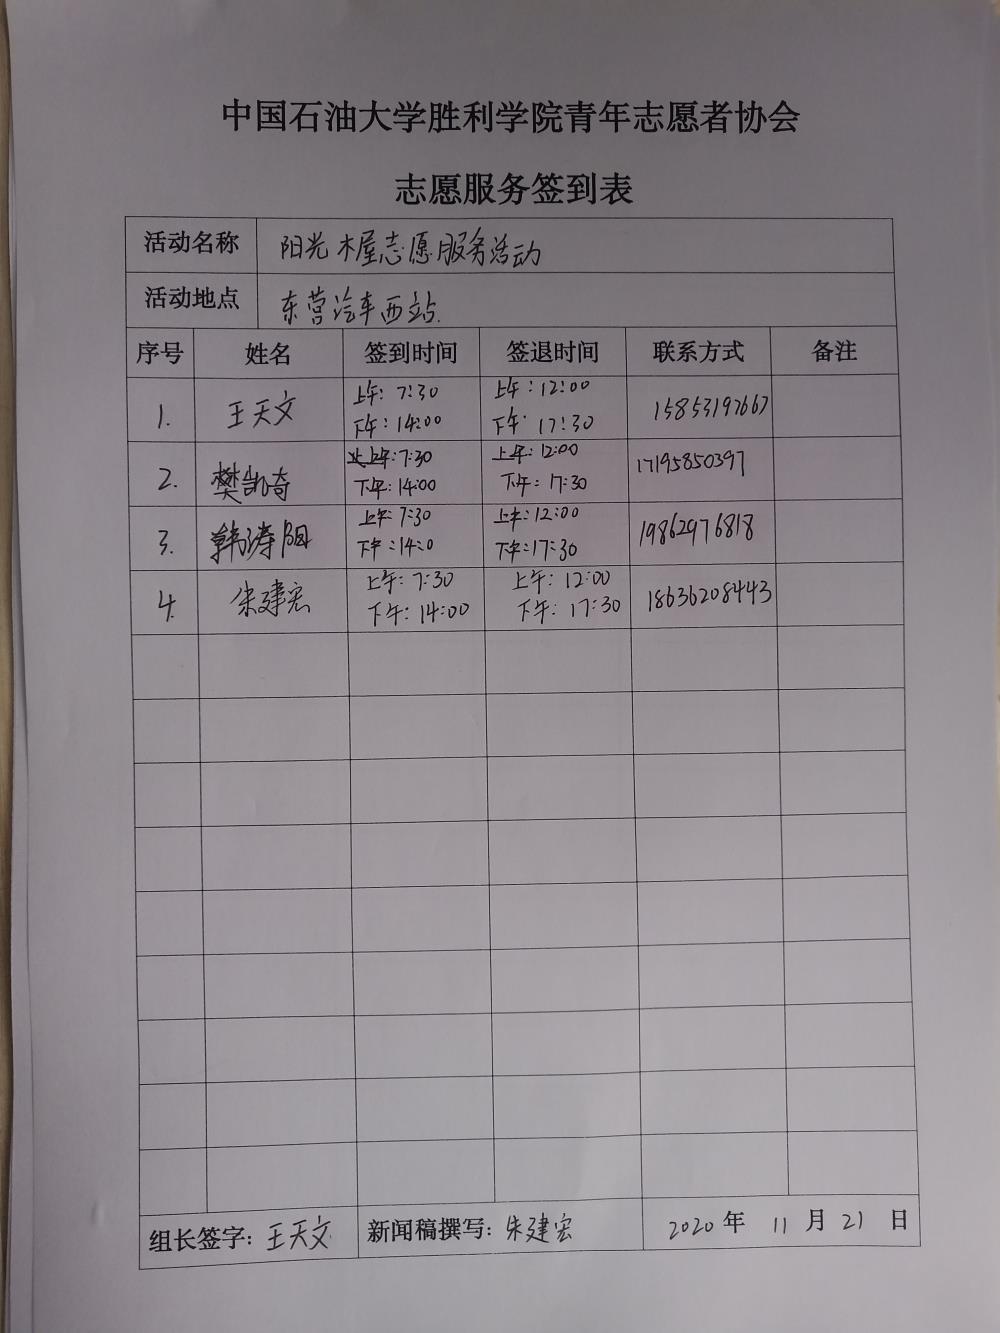 中国石油大学胜利学院青年志愿者协会
志愿服务签到表
活动名称 阳光木屋志愿服务活动
活动地点 东营汽车西站
序号 姓名 签到时间 签退时间 联系方式 备注
1. 王天文 上午: 7:30 上午: 12:00 15853197667
下午: 14:00 下午: 17:30
2. 樊凯奇 上午: 7:30 上午: 12:00 17195850397
下午: 14:00 下午: 17:30
3. 韩涛阳 上午: 7:30 上午: 12:00 19862976818
下午: 14:0 下午: 17:30
4. 朱建宏 上午: 7:30 上午: 12:00 18636208443
下午: 14:00 下午: 17:30
组长签字: 王天文 新闻稿撰写: 朱建宏 2020 年 11 月 21 日